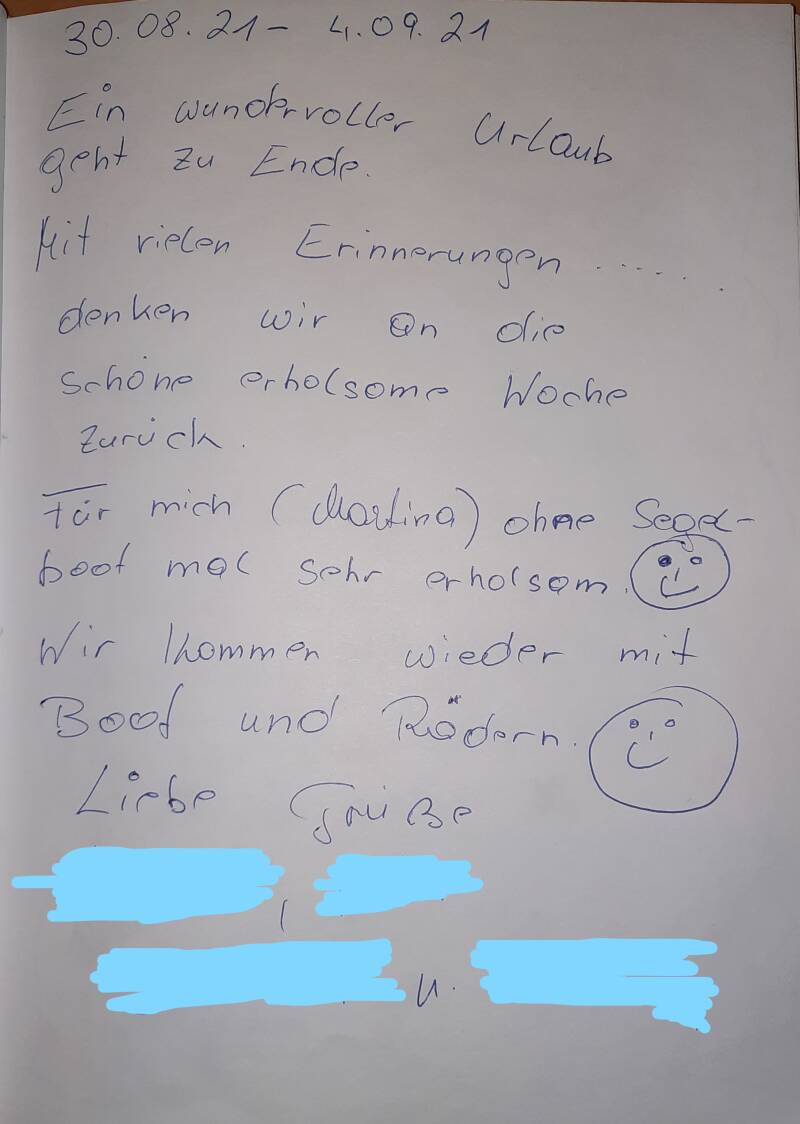 30.08.21 - 4.09.21
Ein wundervoller Urlaub
geht zu Ende.
Mit vielen Erinnerungen .......
denken wir an die
schöne erholsame Woche
zurück.
Für mich (Martina) ohne Segel-
boot mal sehr erholsam.
Wir kommen wieder mit
Boot und Rädern.
Liebe Grüße
,
u.